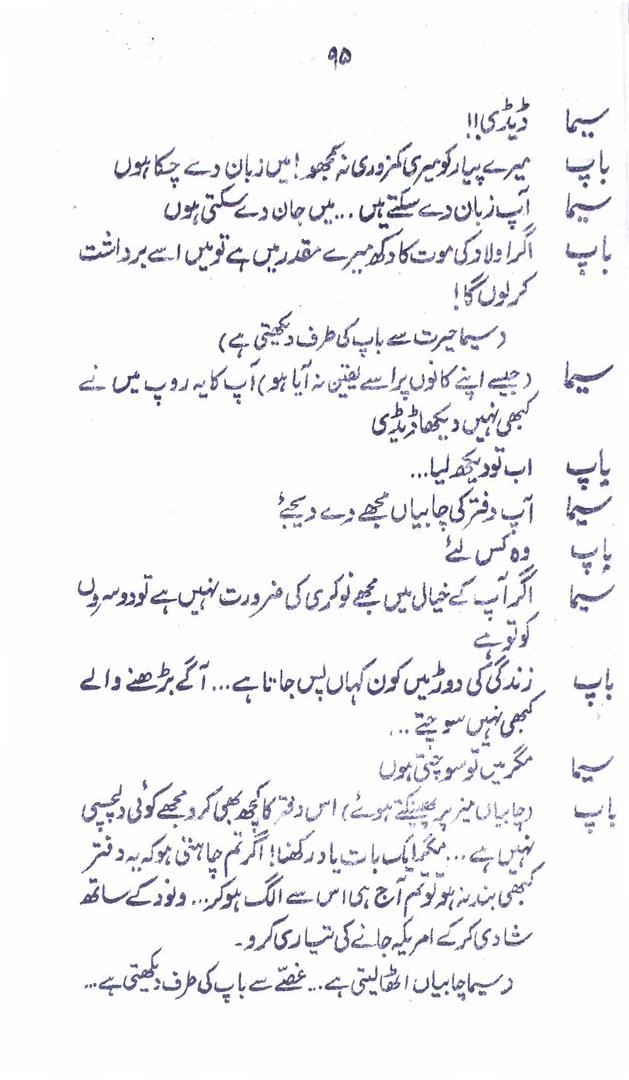 ۹۵
سیما ڈیڈی!!
باپ میرے پیار کو میری کمزوری نہ سمجھو! میں زبان دے چکا ہوں
سیما آپ زبان دے سکتے ہیں ... میں جان دے سکتی ہوں
باپ اگر اولاد کی موت کا دکھ میرے مقدر میں ہے تو میں اسے برداشت
کر لوں گا!
(سیما حیرت سے باپ کی طرف دیکھتی ہے)
سیما (جیسے اپنے کانوں پر اسے یقین نہ آیا ہو) آپ کا یہ روپ میں نے
کبھی نہیں دیکھا ڈیڈی
باپ اب تو دیکھ لیا...
سیما آپ دفتر کی چابیاں مجھے دے دیجئے
باپ وہ کس لئے
سیما اگر آپ کے خیال میں مجھے نوکری کی ضرورت نہیں ہے تو دوسروں
کو تو ہے
باپ زندگی کی دوڑ میں کون کہاں پس جاتا ہے... آگے بڑھنے والے
کبھی نہیں سوچتے ...
سیما مگر میں تو سوچتی ہوں
باپ (چابیاں میز پر پھینکتے ہوئے) اس دفتر کا کچھ بھی کرو مجھے کوئی دلچسپی
نہیں ہے ... مگر ایک بات یاد رکھنا! اگر تم چاہتی ہو کہ یہ دفتر
کبھی بند نہ ہو تو تم آج ہی اس سے الگ ہو کر... ونود کے ساتھ
شادی کر کے امریکہ جانے کی تیاری کرو۔
(سیما چابیاں اٹھا لیتی ہے... غصے سے باپ کی طرف دیکھتی ہے...